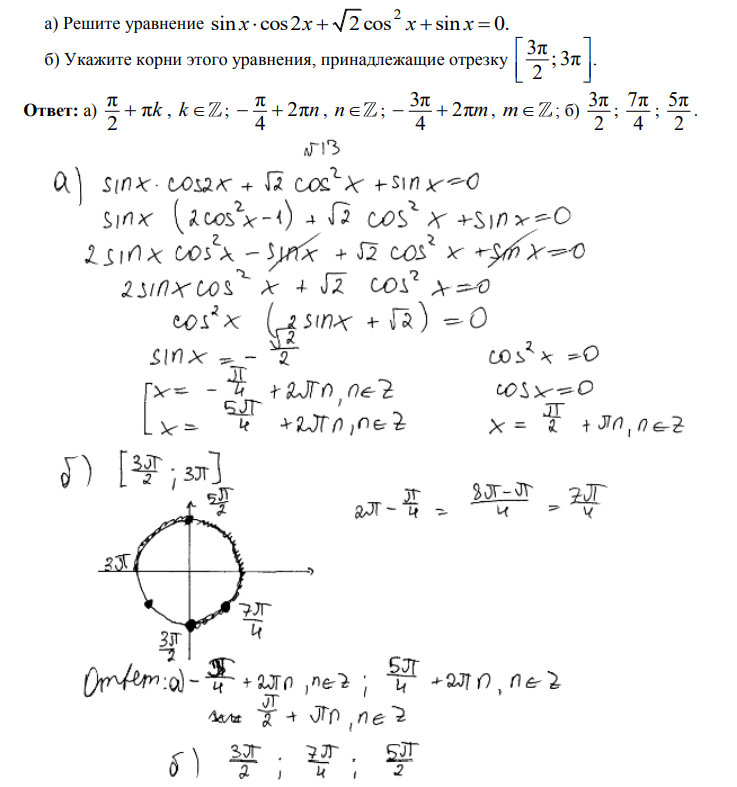 а) Решите уравнение sin x · cos 2x + √2 cos² x + sin x = 0.
б) Укажите корни этого уравнения, принадлежащие отрезку [3π/2; 3π].
Ответ: а) π/2 + πk, k ∈ ℤ; −π/4 + 2πn, n ∈ ℤ; −3π/4 + 2πm, m ∈ ℤ; б) 3π/2; 7π/4; 5π/2.
№13
а) sinx · cos2x + √2 cos²x + sinx = 0
sinx (2cos²x − 1) + √2 cos²x + sinx = 0
2sinx cos²x − sinx + √2 cos²x + sinx = 0
2sinx cos²x + √2 cos²x = 0
cos²x (2sinx + √2) = 0
sinx = −√2/2 cos²x = 0
[x = −π/4 + 2πn, n∈Z cosx = 0
[x = 5π/4 + 2πn, n∈Z x = π/2 + πn, n∈Z
б) [3π/2; 3π]
5π/2 2π − π/4 = (8π−π)/4 = 7π/4
3π
7π/4
3π/2
Ответ: а) −π/4 + 2πn, n∈Z; 5π/4 + 2πn, n∈Z
π/2 + πn, n∈Z
б) 3π/2; 7π/4; 5π/2